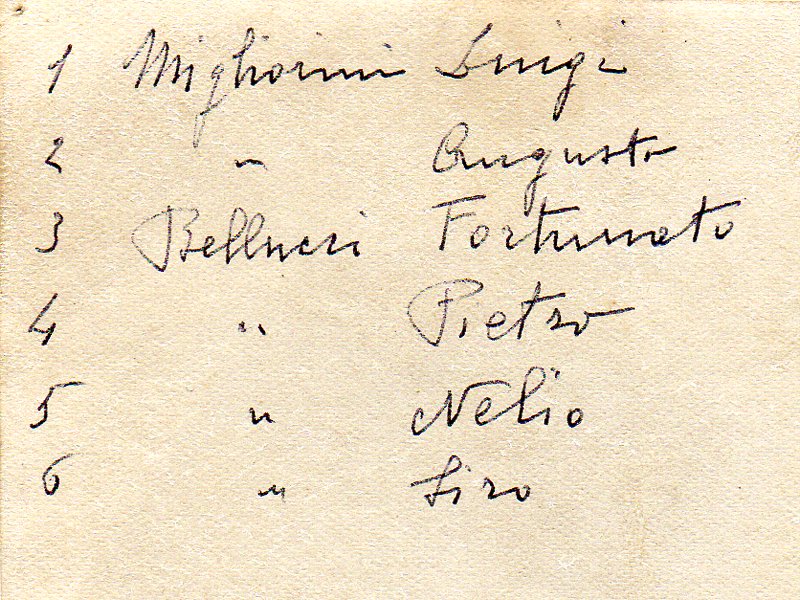 1 Migliorini Luigi
2 " Augusto
3 Bellucci Fortunato
4 " Pietro
5 " Nelio
6 " Siro